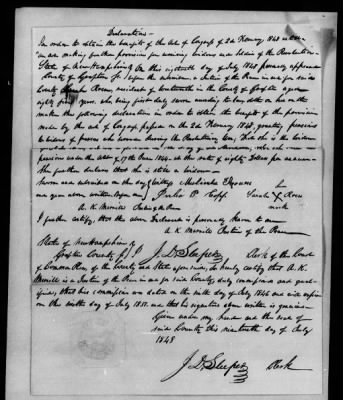 Declaration
In order to obtain the benefit of the Act of Congress of 2d February 1848 entitled
"An act making further provision for surviving widows and soldiers of the Revolution
State of New Hampshire, On this eighteenth day of July 1848 personally appeared
County of Grafton Ss before the subscriber, a Justice of the Peace in and for said
County Sarah, resident of Wentworth in the County of Grafton aged
eighty five years, who being first duly sworn according to law, doth on her oath
make the following declaration in order to obtain the benefit of the provision
made by the act of Congress passed on the 2d February 1848, granting pensions
to widows of persons who served during the Revolutionary war, That she is the widow
pension under the act of 17th June 1844, at the rate of eighty dollars per annum
She further declares that she is still a widow
Sworn and subscribed on the day
and year above written before me Sarah X
A. K. Merrill Justice of the Peace mark
I further certify, that the above Declarant is personally known to me
A. K. Merrill Justice of the Peace
State of New Hampshire
Grafton County Ss I J. D. Sleeper Clerk of the Court
of Common Pleas of the County and State aforesaid, do hereby certify that A. K.
Merrill is a Justice of the Peace in and for said County duly commissioned and qual-
ified, that his commission was dated on the ninth day of July 1846 and will expire
on the ninth day of July 1851. and that his signature upon written is genuine
Given under my hand and the seal of
said County this nineteenth day of July
1848
J. D. Sleeper Clerk